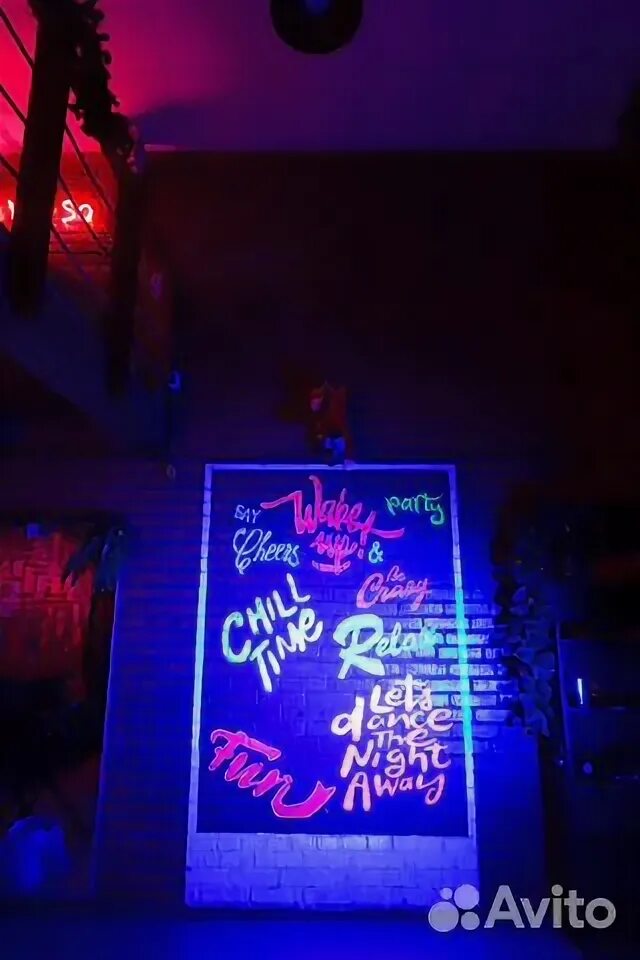 SAY
Cheers
party
&
Be
Crazy
CHILL
TIME
Relax
Let's
dance
The
Night
Away
Fun
Avito